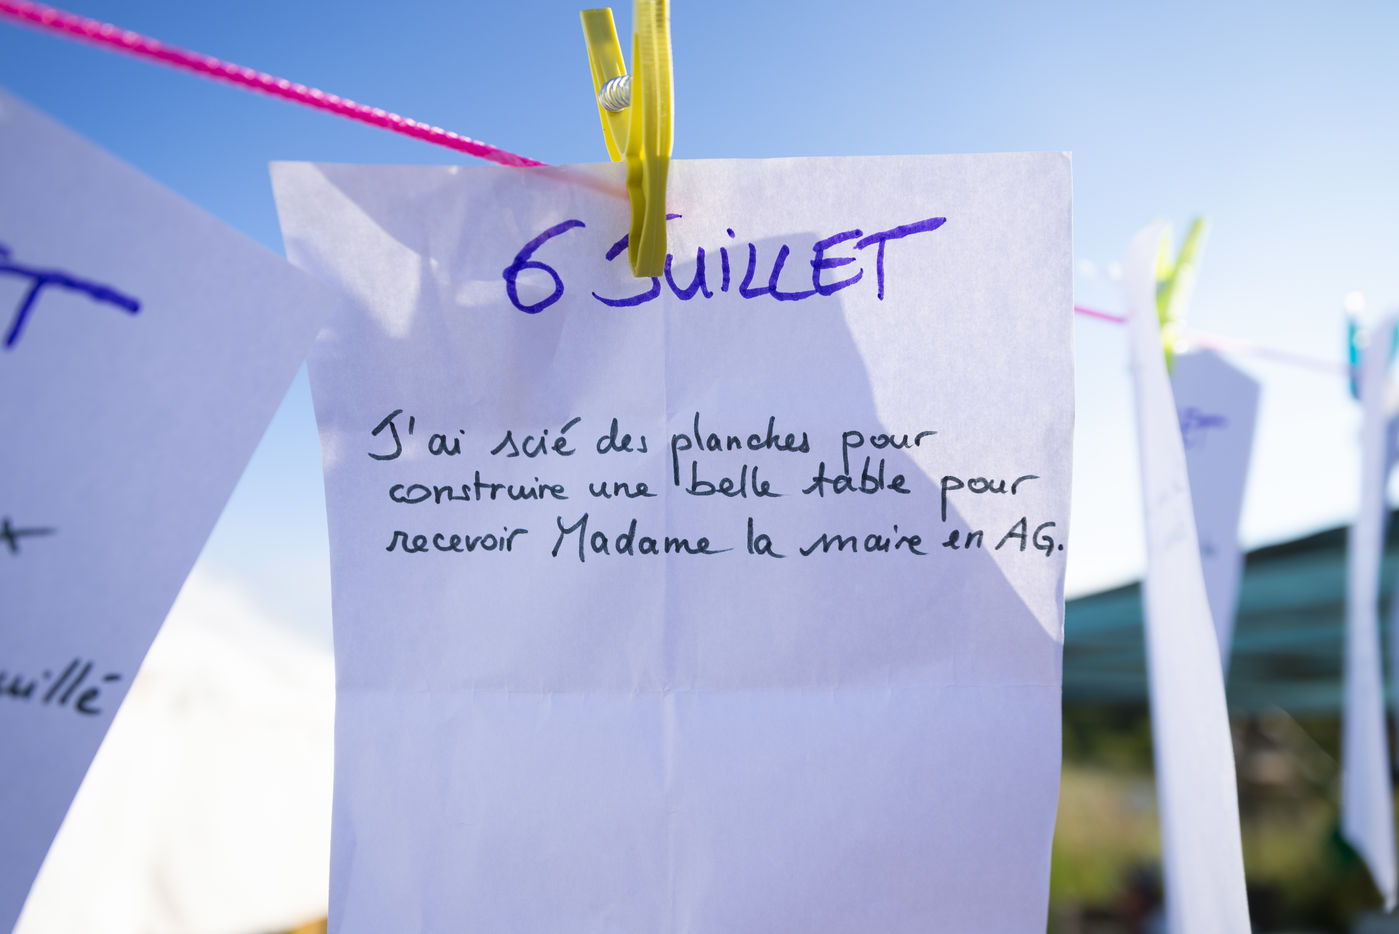 6 JUILLET
J'ai scié des planches pour
construire une belle table pour
recevoir Madame la maire en AG.